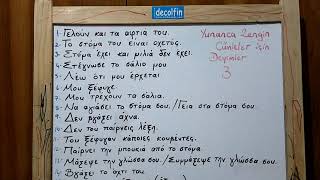 decolfin
1. Γελούν και τα αφτιά του.
2. Το στόμα του είναι οχετός.
3. Στόμα έχει και μιλιά δεν έχει.
4. Στέγνωσε το σάλιο μου.
5. Λέω ότι μου έρχεται
6. Μου ξέφυγε.
7. Μου τρέχουν τα σάλια.
8. Να αγιάσει το στόμα σου. / Γεια στο στόμα σου.
9. Δεν βγάζει άχνα.
10. Δεν του παίρνεις λέξη.
11. Του ξέφυγαν κάποιες κουβέντες.
12. Παίρνει την μπουκιά από το στόμα
13. Μάζεψε την γλώσσα σου. / Συμμάζεψε την γλώσσα σου.
14. Βγάζει το άχτι του.
Yunanca Zengin
Cümleler için
Deyimler
3